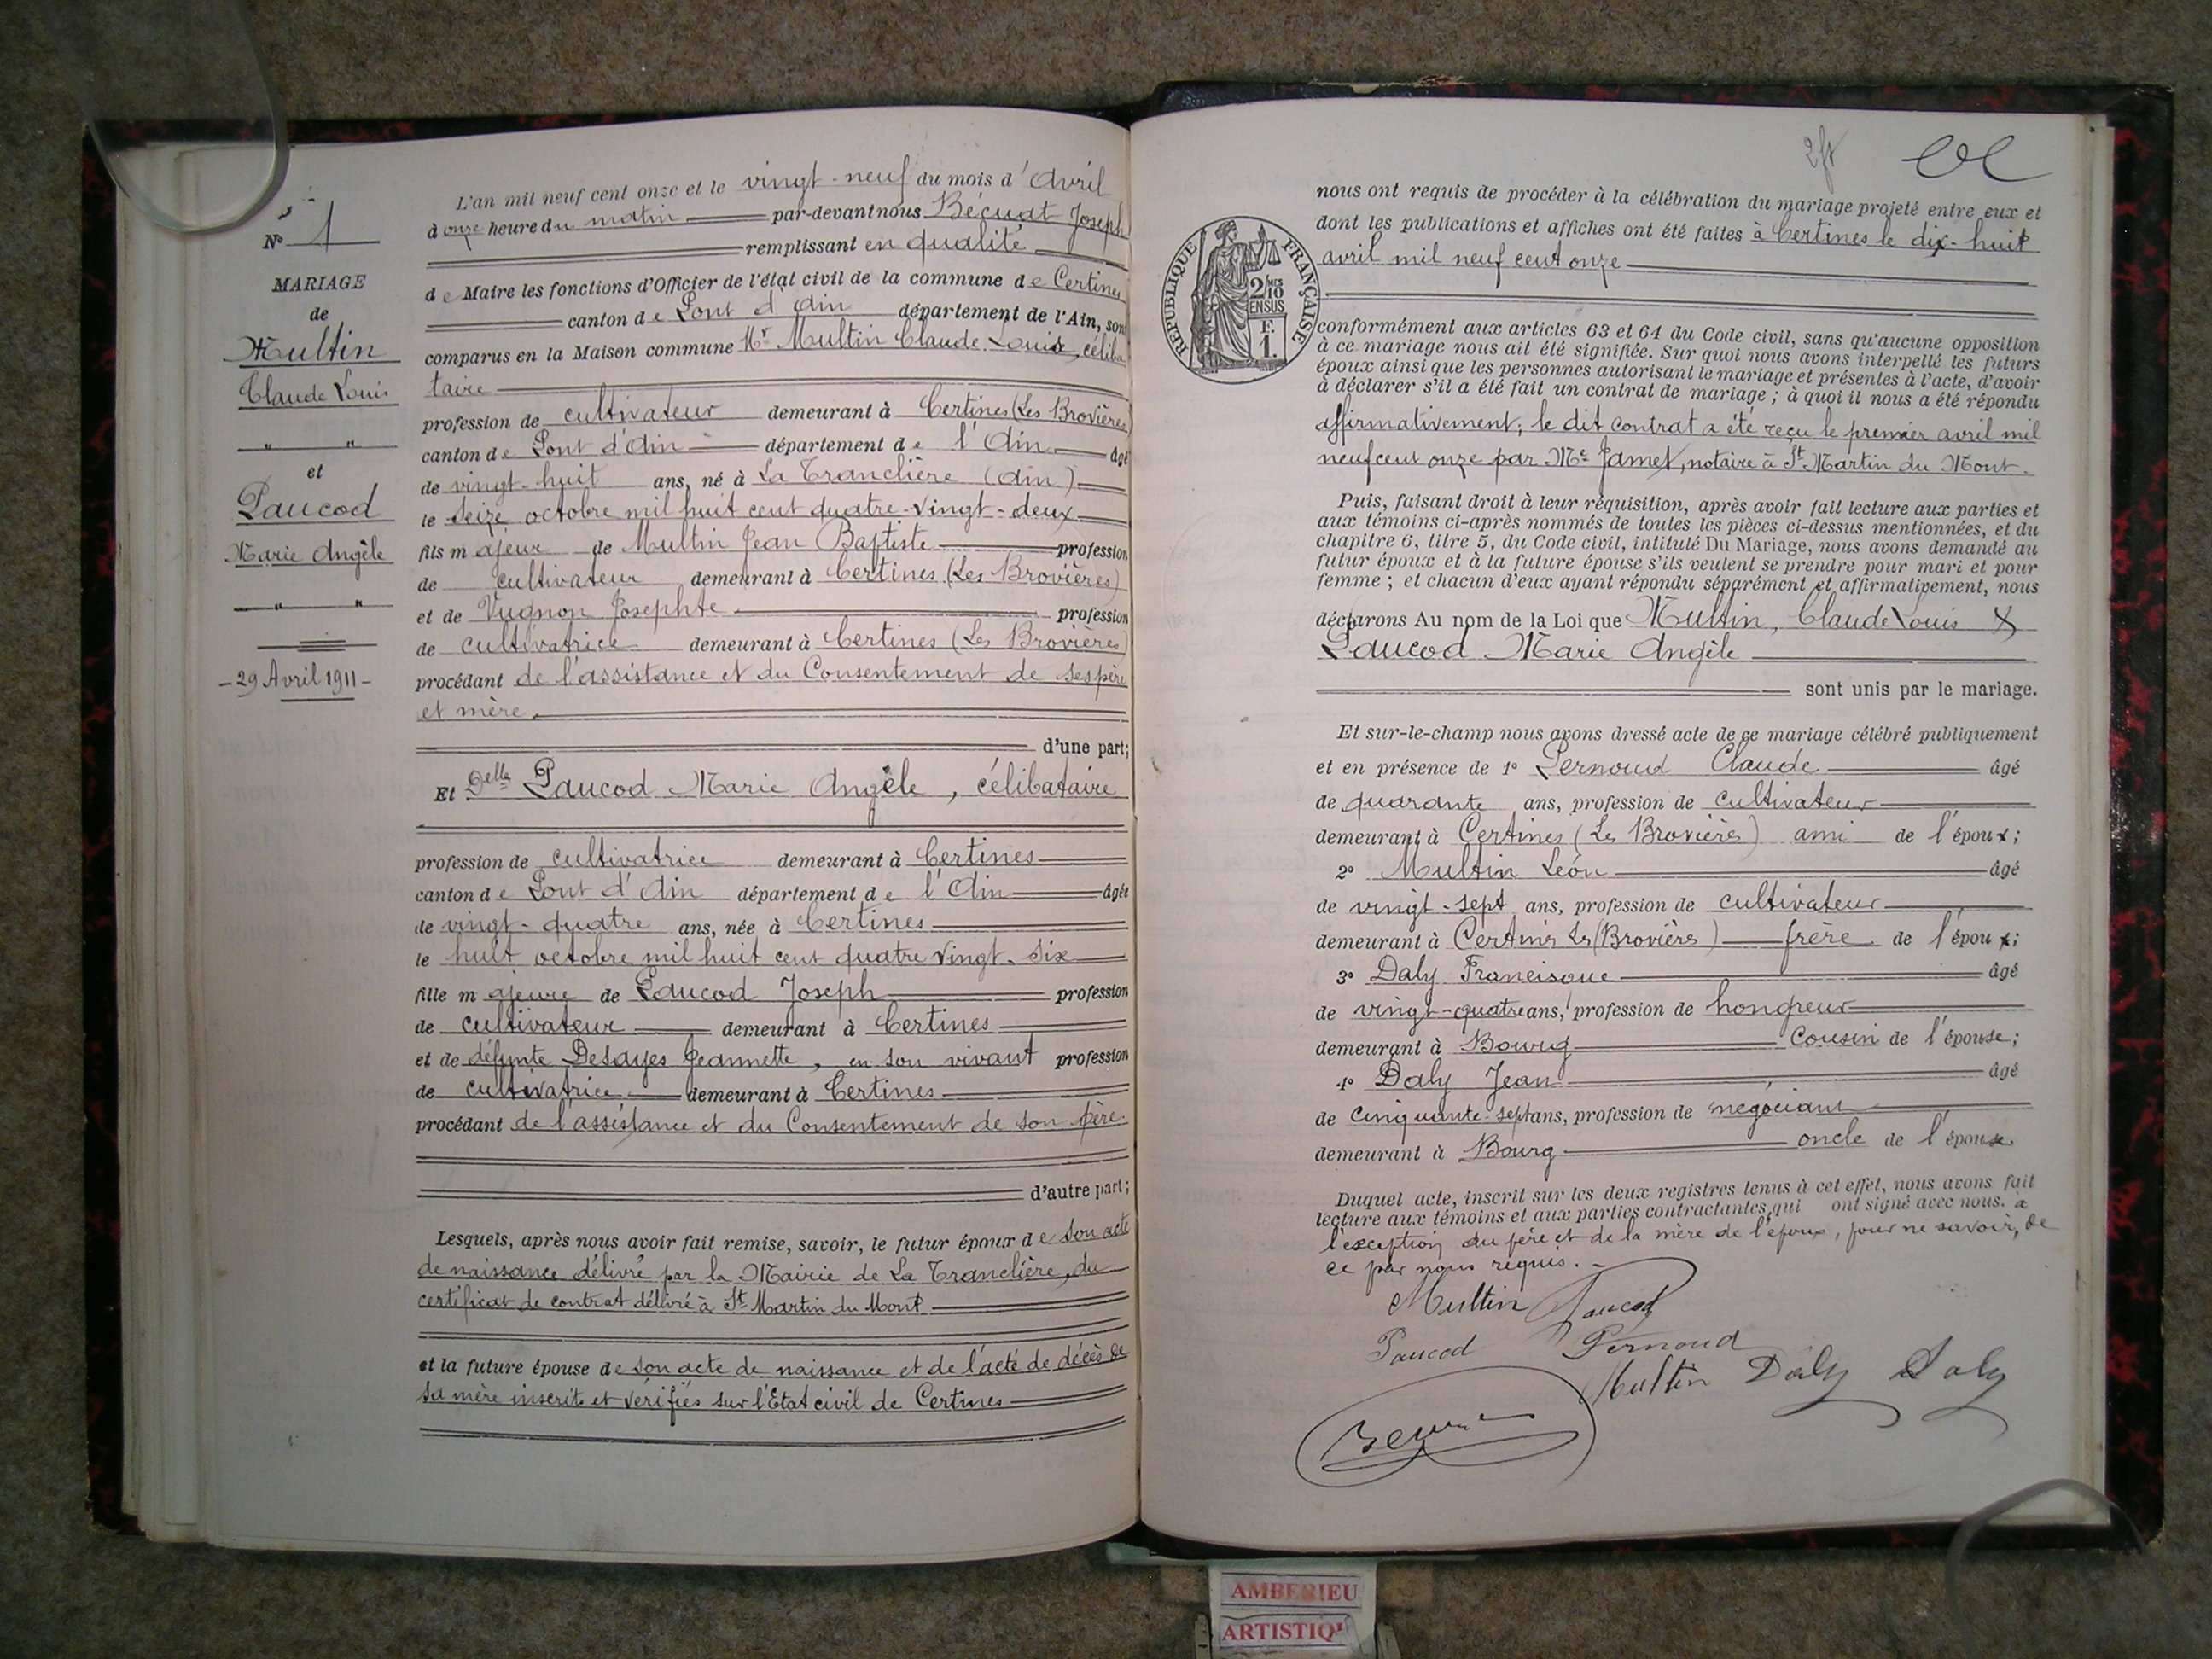 N° 1
MARIAGE
de
Multin
Claude Louis
" "
et
Paucod
Marie Angèle
" "
- 29 Avril 1911 -
L'an mil neuf cent onze et le vingt-neuf du mois d'Avril
à onze heure du matin par-devant nous Becuat Joseph
remplissant en qualité
de Maire les fonctions d'Officier de l'état civil de la commune de Certines
canton de Pont d'Ain département de l'Ain, sont
comparus en la Maison commune Mr Multin Claude Louis, céliba
taire
profession de cultivateur demeurant à Certines (Les Brovières)
canton de Pont d'Ain département de l'Ain âgé
de vingt-huit ans, né à La Tranclière (Ain)
le seize octobre mil huit cent quatre-vingt-deux
fils majeur de Multin Jean Baptiste profession
de cultivateur demeurant à Certines (Les Brovières)
et de Vugnon Josephte profession
de cultivatrice demeurant à Certines (Les Brovières)
procédant de l'assistance et du Consentement de ses père
et mère.
d'une part;
Et Delle Paucod Marie Angèle, célibataire
profession de cultivatrice demeurant à Certines
canton de Pont d'Ain département de l'Ain âgée
de vingt-quatre ans, née à Certines
le huit octobre mil huit cent quatre vingt-six
fille majeure de Paucod Joseph profession
de cultivateur demeurant à Certines
et de défunte Desayes Jeannette, en son vivant profession
de cultivatrice demeurant à Certines
procédant de l'assistance et du Consentement de son père
d'autre part;
Lesquels, après nous avoir fait remise, savoir, le futur époux de son acte
de naissance délivré par la Mairie de La Tranclière, du
certificat de contrat délivré à St Martin du Mont
et la future épouse de son acte de naissance et de l'acte de décès de
sa mère inscrits et vérifiés sur l'Etat civil de Certines
nous ont requis de procéder à la célébration du mariage projeté entre eux et
dont les publications et affiches ont été faites à Certines le dix-huit
avril mil neuf cent onze
RÉPUBLIQUE FRANÇAISE
2/10
EN SUS
F.
1.
conformément aux articles 63 et 64 du Code civil, sans qu'aucune opposition
à ce mariage nous ait été signifiée. Sur quoi nous avons interpellé les futurs
époux ainsi que les personnes autorisant le mariage et présentes à l'acte, d'avoir
à déclarer s'il a été fait un contrat de mariage ; à quoi il nous a été répondu
affirmativement; le dit contrat a été reçu le premier avril mil
neuf cent onze par Me Jamet, notaire à St Martin du Mont.
Puis, faisant droit à leur réquisition, après avoir fait lecture aux parties et
aux témoins ci-après nommés de toutes les pièces ci-dessus mentionnées, et du
chapitre 6, titre 5, du Code civil, intitulé Du Mariage, nous avons demandé au
futur époux et à la future épouse s'ils veulent se prendre pour mari et pour
femme ; et chacun d'eux ayant répondu séparément et affirmativement, nous
déclarons Au nom de la Loi que Multin, Claude Louis &
Paucod Marie Angèle
sont unis par le mariage.
Et sur-le-champ nous avons dressé acte de ce mariage célébré publiquement
et en présence de 1° Pernoud Claude âgé
de quarante ans, profession de cultivateur
demeurant à Certines (Les Brovières) ami de l'époux;
2° Multin Léon âgé
de vingt-sept ans, profession de cultivateur
demeurant à Certines Les (Brovières) frère de l'époux;
3° Daly Francisque âgé
de vingt-quatre ans, profession de hongreur
demeurant à Bourg Cousin de l'épouse;
4° Daly Jean âgé
de cinquante-sept ans, profession de négociant
demeurant à Bourg oncle de l'épouse
Duquel acte, inscrit sur les deux registres tenus à cet effet, nous avons fait
lecture aux témoins et aux parties contractantes, qui ont signé avec nous. à
l'exception du père et de la mère de l'époux, pour ne savoir, de
ce par nous requis.
Multin Paucod
Paucod Pernoud
Multin Daly Daly
AMBERIEU
ARTISTIQ